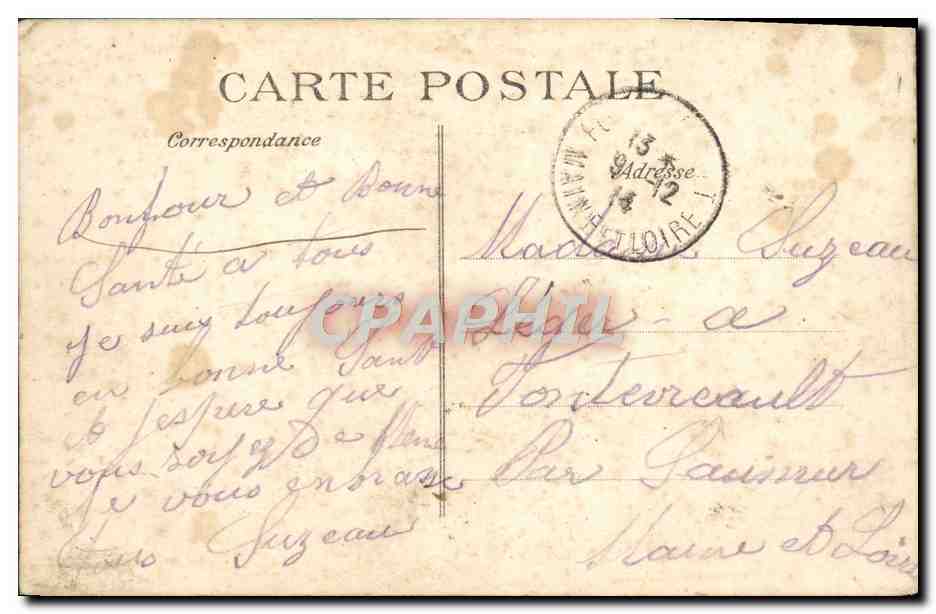 CARTE POSTALE
Correspondance
Adresse
Bonjour et Bonne
Santé a tous
Je suis toujours
en bonne Santé
et jespere que
vous soyez de Meme
Je vous enbrasse
tous Suzeau
13 *
9 - 12
14
MAINE-ET-LOIRE
Madame Suzeau
a
Fontevreault
Par Saumur
Maine et Loire
CPAPHIL